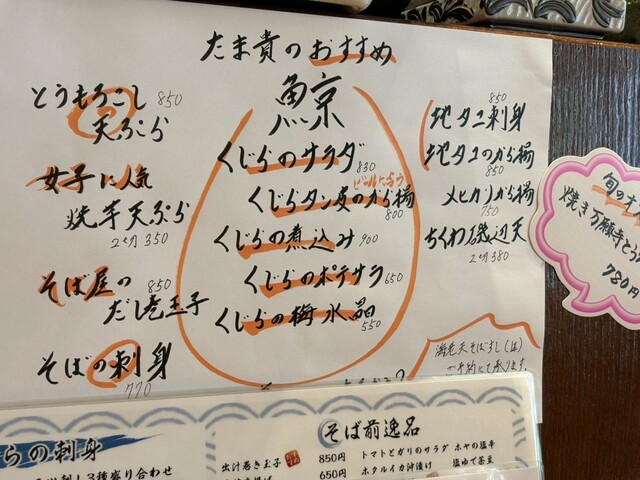 たま貴のおすすめ
とうもろこし 850
天ぷら
女子に人気
焼芋天ぷら
2ヶ 350
そば屋の 850
だし巻玉子
そばの刺身
770
鯨
くじらのサラダ 830
ビールに合う
くじらタン皮のから揚 800
くじらの煮込み 900
くじらのポテサラ 650
くじらの梅水晶 550
850
地タコ刺身
地タコのから揚
850
メヒカリから揚
750
ちくわ磯辺天
2ヶ 380
海老天そばすし(は)
ご予約にて承ります。
焼き万願寺とう
780円
らの刺身
3種盛り合わせ
そば前逸品
出汁巻き玉子 850円 トマトとガリのサラダ ホヤの塩辛
650円 ホタルイカ沖漬け 塩ゆで茶豆